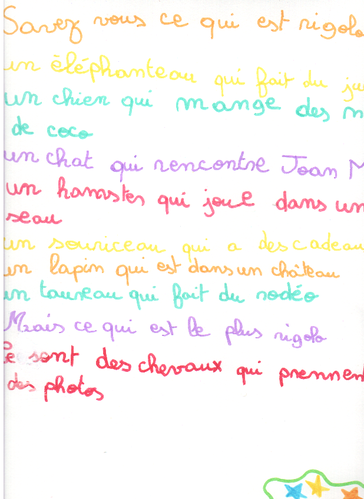 Savez vous ce qui est rigolo
un éléphanteau qui fait du ju
un chien qui mange des n
de coco
un chat qui rencontre Joan M
un hamster qui joue dans un
seau
un souriceau qui a des cadeau
un lapin qui est dans un château
un taureau qui fait du rodéo
Mais ce qui est le plus rigolo
Ce sont des chevaux qui prennent
des photos